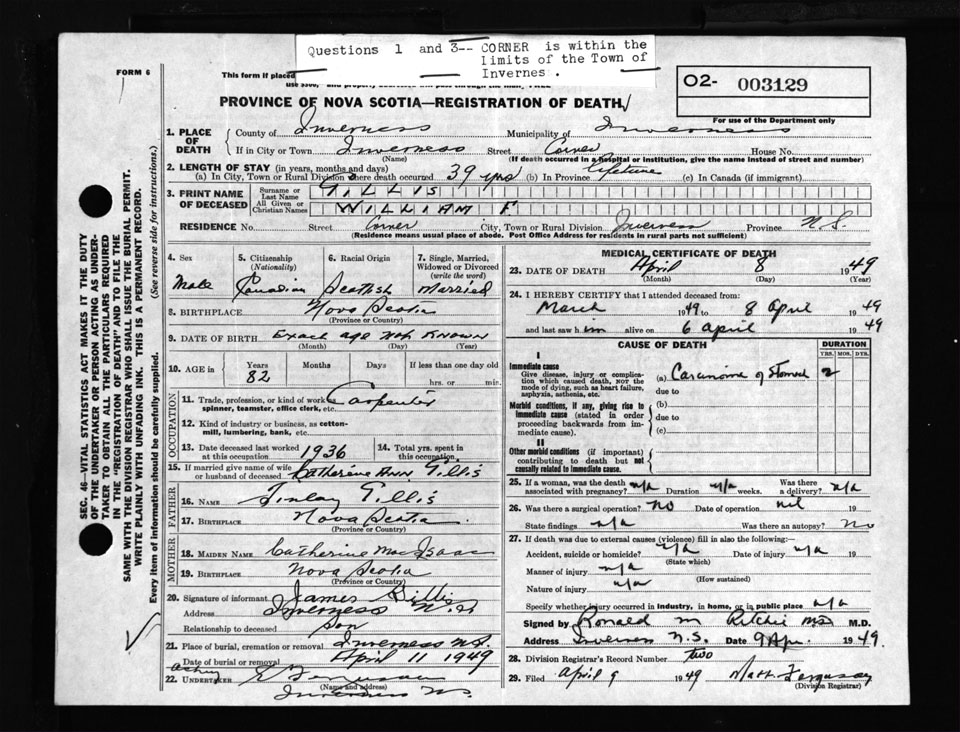 Questions 1 and 3-- CORNER is within the
limits of the Town of
Invernes.
FORM 6
This form if placed
02- 003129
PROVINCE OF NOVA SCOTIA—REGISTRATION OF DEATH
For use of the Department only
1. PLACE OF DEATH
County of Inverness Municipality of Inverness
If in City or Town Inverness Street Corner House No.
(Name) (If death occurred in a hospital or institution, give the name instead of street and number)
2. LENGTH OF STAY (in years, months and days)
(a) In City, Town or Rural Division where death occurred 39 yrs (b) In Province lifetime (c) In Canada (if immigrant)
3. PRINT NAME OF DECEASED
Surname or Last Name GILLIS
All Given or Christian Names WILLIAM F
RESIDENCE No. Street Corner City, Town or Rural Division Inverness Province N.S.
(Residence means usual place of abode. Post Office Address for residents in rural parts not sufficient)
4. Sex Male
5. Citizenship (Nationality) Canadian
6. Racial Origin Scottish
7. Single, Married, Widowed or Divorced (write the word) Married
8. BIRTHPLACE Nova Scotia
(Province or Country)
9. DATE OF BIRTH Exact age not known
(Month) (Day) (Year)
10. AGE in Years 82 Months Days If less than one day old
hrs. or min.
OCCUPATION
11. Trade, profession, or kind of work as spinner, teamster, office clerk, etc. Carpenter
12. Kind of industry or business, as cotton-mill, lumbering, bank, etc.
13. Date deceased last worked at this occupation 1936
14. Total yrs. spent in this occupation
15. If married give name of wife or husband of deceased Katherine Ann Gillis
FATHER
16. NAME Finlay Gillis
17. BIRTHPLACE Nova Scotia
(Province or Country)
MOTHER
18. MAIDEN NAME Catherine MacIsaac
19. BIRTHPLACE Nova Scotia
(Province or Country)
20. Signature of informant James Gillis
Address Inverness N.S.
Relationship to deceased Son
21. Place of burial, cremation or removal Inverness N.S.
Date of burial or removal April 11 1949
Acting
22. UNDERTAKER E Ferguson
(Name and address)
Inverness N.S.
MEDICAL CERTIFICATE OF DEATH
23. DATE OF DEATH April 8 1949
(Month) (Day) (Year)
24. I HEREBY CERTIFY that I attended deceased from:
March 1949 to 8 April 1949
and last saw him alive on 6 April 1949
CAUSE OF DEATH DURATION
YRS. MOS. DYS.
I
Immediate cause
Give disease, injury or complication which caused death, NOT the mode of dying, such as heart failure, asphyxia, asthenia, etc.
(a) Carcinoma of Stomach 2
due to
Morbid conditions, if any, giving rise to immediate cause (stated in order proceeding backwards from immediate cause).
(b)
due to
(c)
II
Other morbid conditions (if important) contributing to death but not causally related to immediate cause.
25. If a woman, was the death associated with pregnancy? n/a Duration n/a weeks. Was there a delivery? n/a
26. Was there a surgical operation? No Date of operation nil 19
State findings n/a Was there an autopsy? No
27. If death was due to external causes (violence) fill in also the following:—
Accident, suicide or homicide? n/a Date of injury n/a 19
(State which)
Manner of injury n/a
(How sustained)
Nature of injury n/a
Specify whether injury occurred in industry, in home, or in public place n/a
Signed by Ronald M Ritchie MD M.D.
Address Inverness N.S. Date 9 Apr. 1949
28. Division Registrar's Record Number two
29. Filed April 9 1949 Matt. Ferguson
(Division Registrar)
SEC. 46—VITAL STATISTICS ACT MAKES IT THE DUTY
OF THE UNDERTAKER OR PERSON ACTING AS UNDER-
TAKER TO OBTAIN ALL THE PARTICULARS REQUIRED
IN THE "REGISTRATION OF DEATH" AND TO FILE THE
SAME WITH THE DIVISION REGISTRAR WHO SHALL ISSUE THE BURIAL PERMIT.
WRITE PLAINLY WITH UNFADING INK. THIS IS A PERMANENT RECORD.
Every item of information should be carefully supplied. (See reverse side for instructions.)